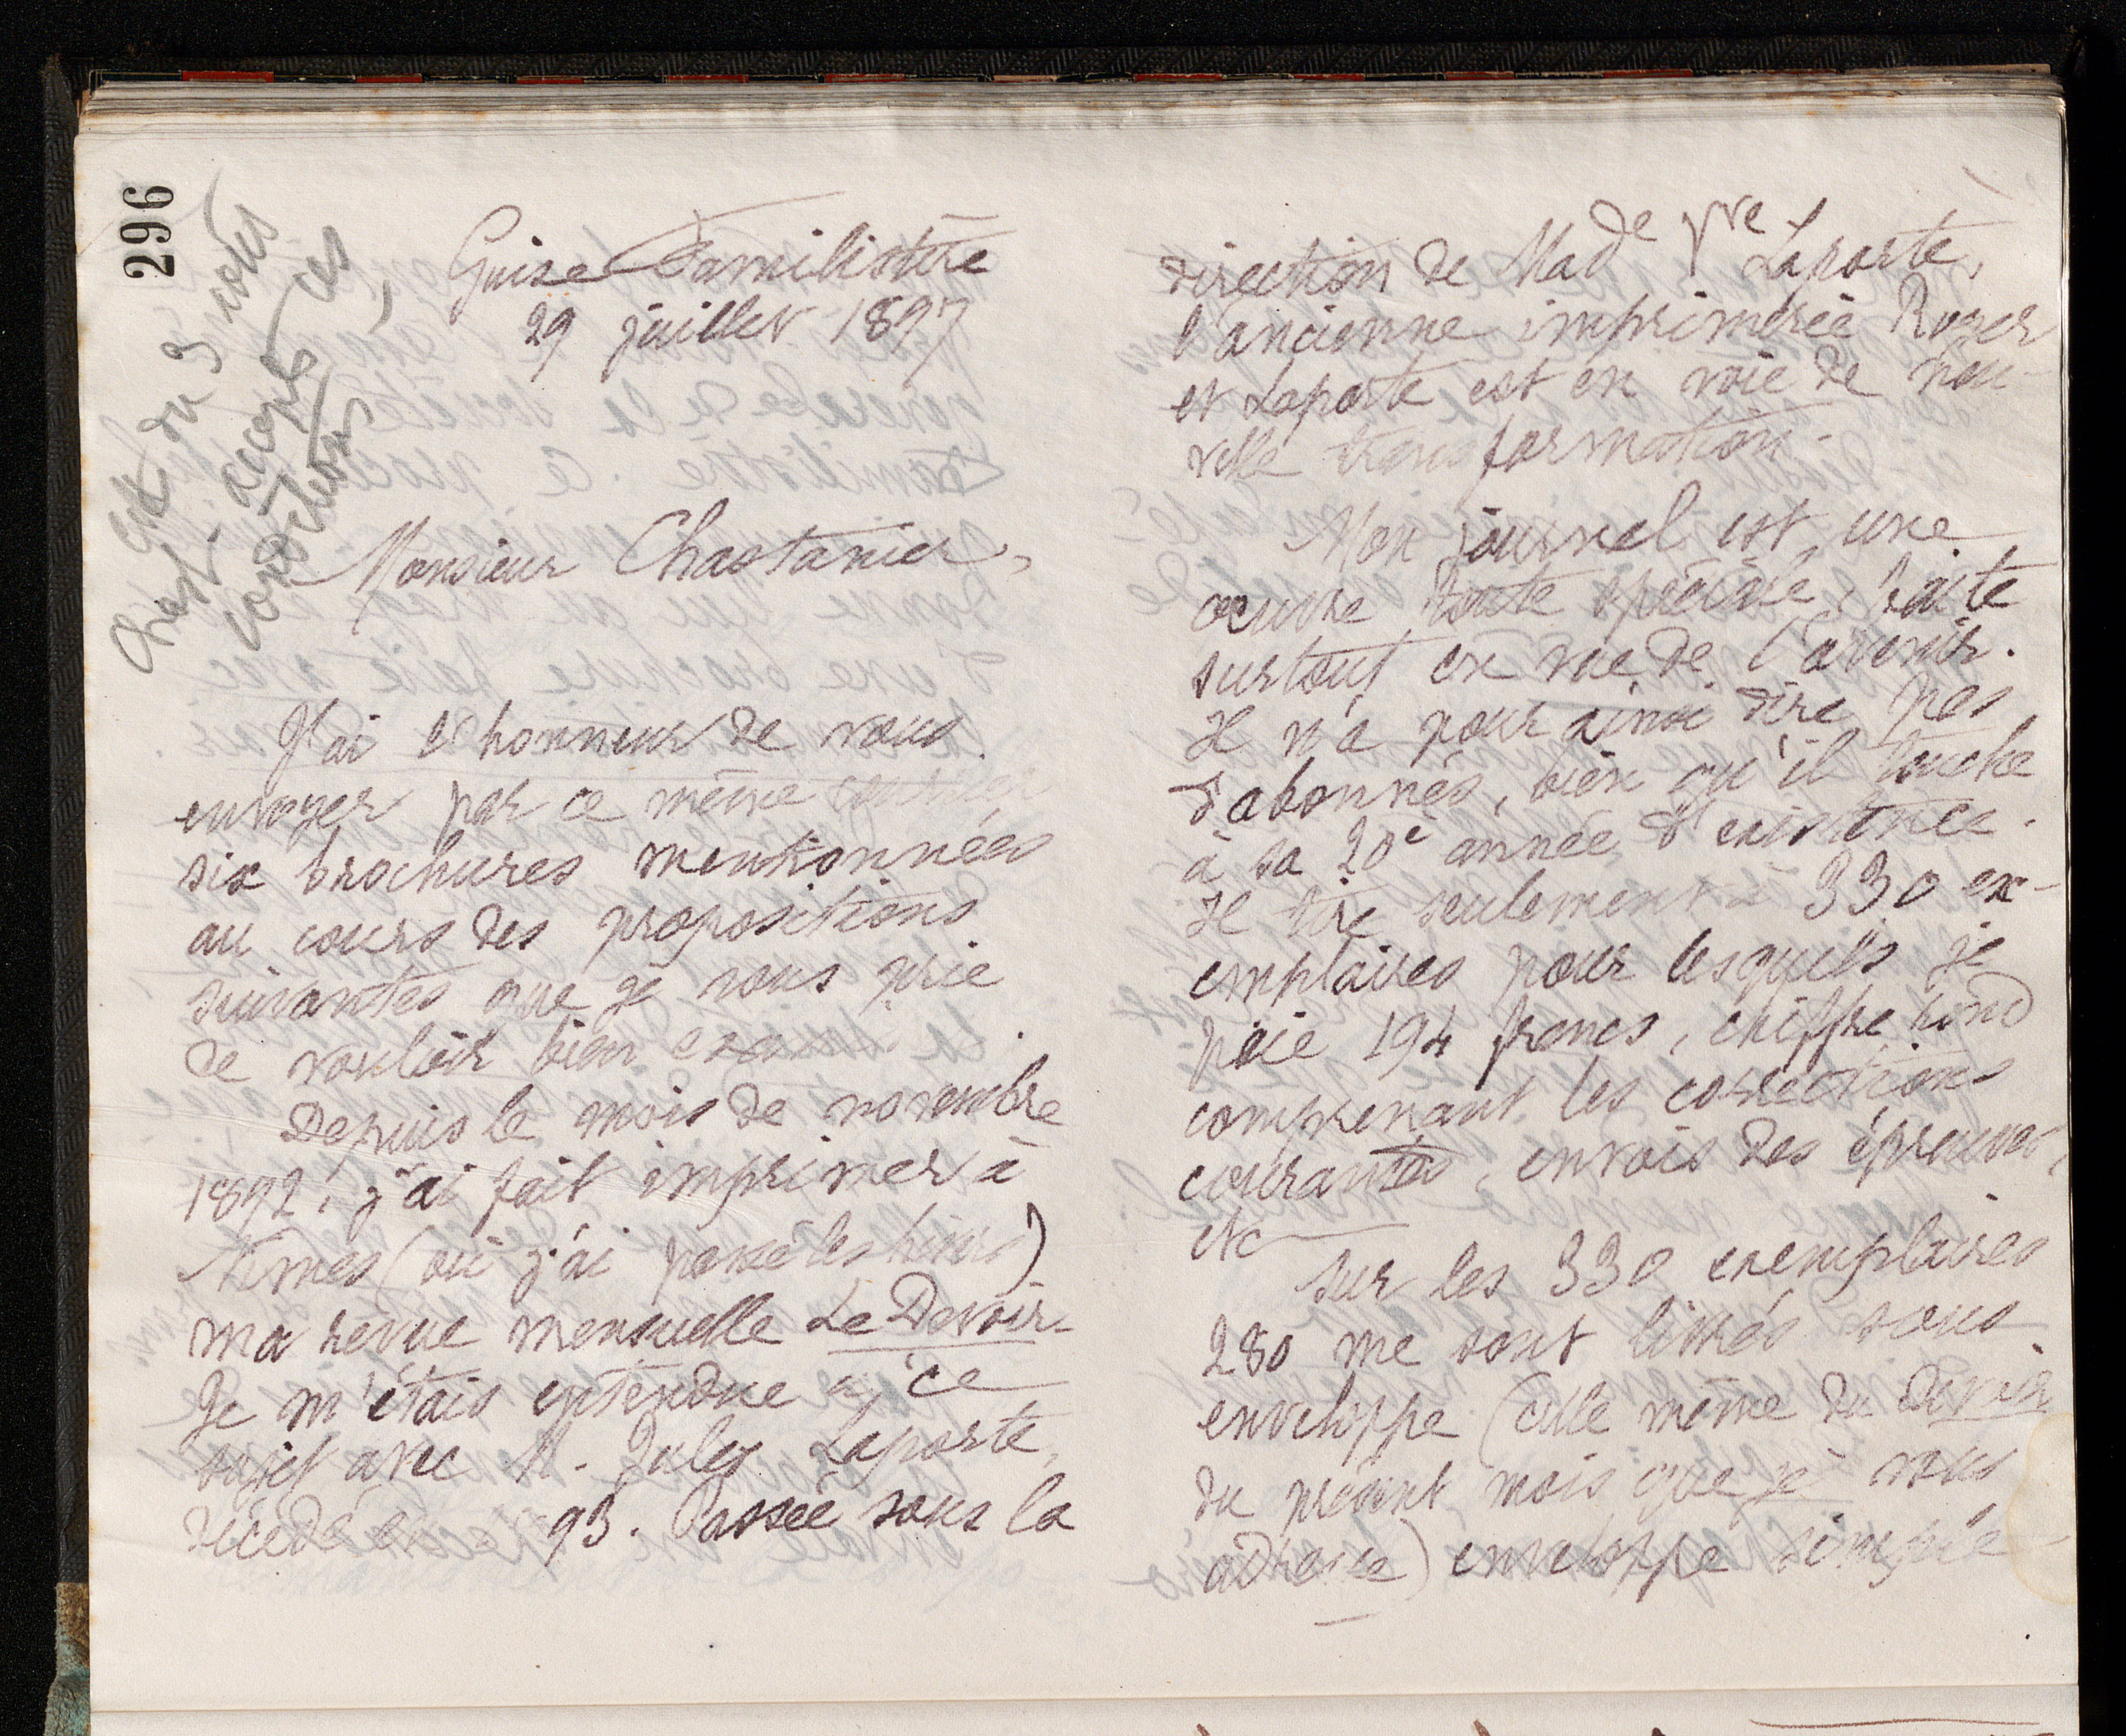 296
du 9 août
accepte ces
conditions
Guise Familistère
29 juillet 1897
Monsieur Chastanier,
J'ai l'honneur de vous
envoyer par ce même courrier
six brochures mentionnées
au cours des propositions
suivantes que je vous prie
de vouloir bien
Depuis le mois de novembre
1892, j'ai fait imprimer à
Nîmes (où j'ai passé les hivers)
ma revue mensuelle Le Devoir.
Je m'étais entendue à ce
sujet avec M. Jules Laporte,
décédé en 93. Passée sous la
direction de Made Vve Laporte,
l'ancienne imprimerie Roger
et Laporte est en voie de nou-
velle transformation.
Mon journal est une
œuvre toute spéciale, faite
surtout en vue de l'avenir.
Il n'a pour ainsi dire pas
d'abonnés, bien qu'il touche
à sa 20e année d'existence.
Il tire seulement à 330 ex-
emplaires pour lesquels je
paie 194 francs, chiffre rond
comprenant les corrections
courantes, envois des épreuves,
etc
Sur les 330 exemplaires
280 me sont livrés sous
enveloppe (celle même du Devoir
du présent mois que je vous
adresse) enveloppe simple